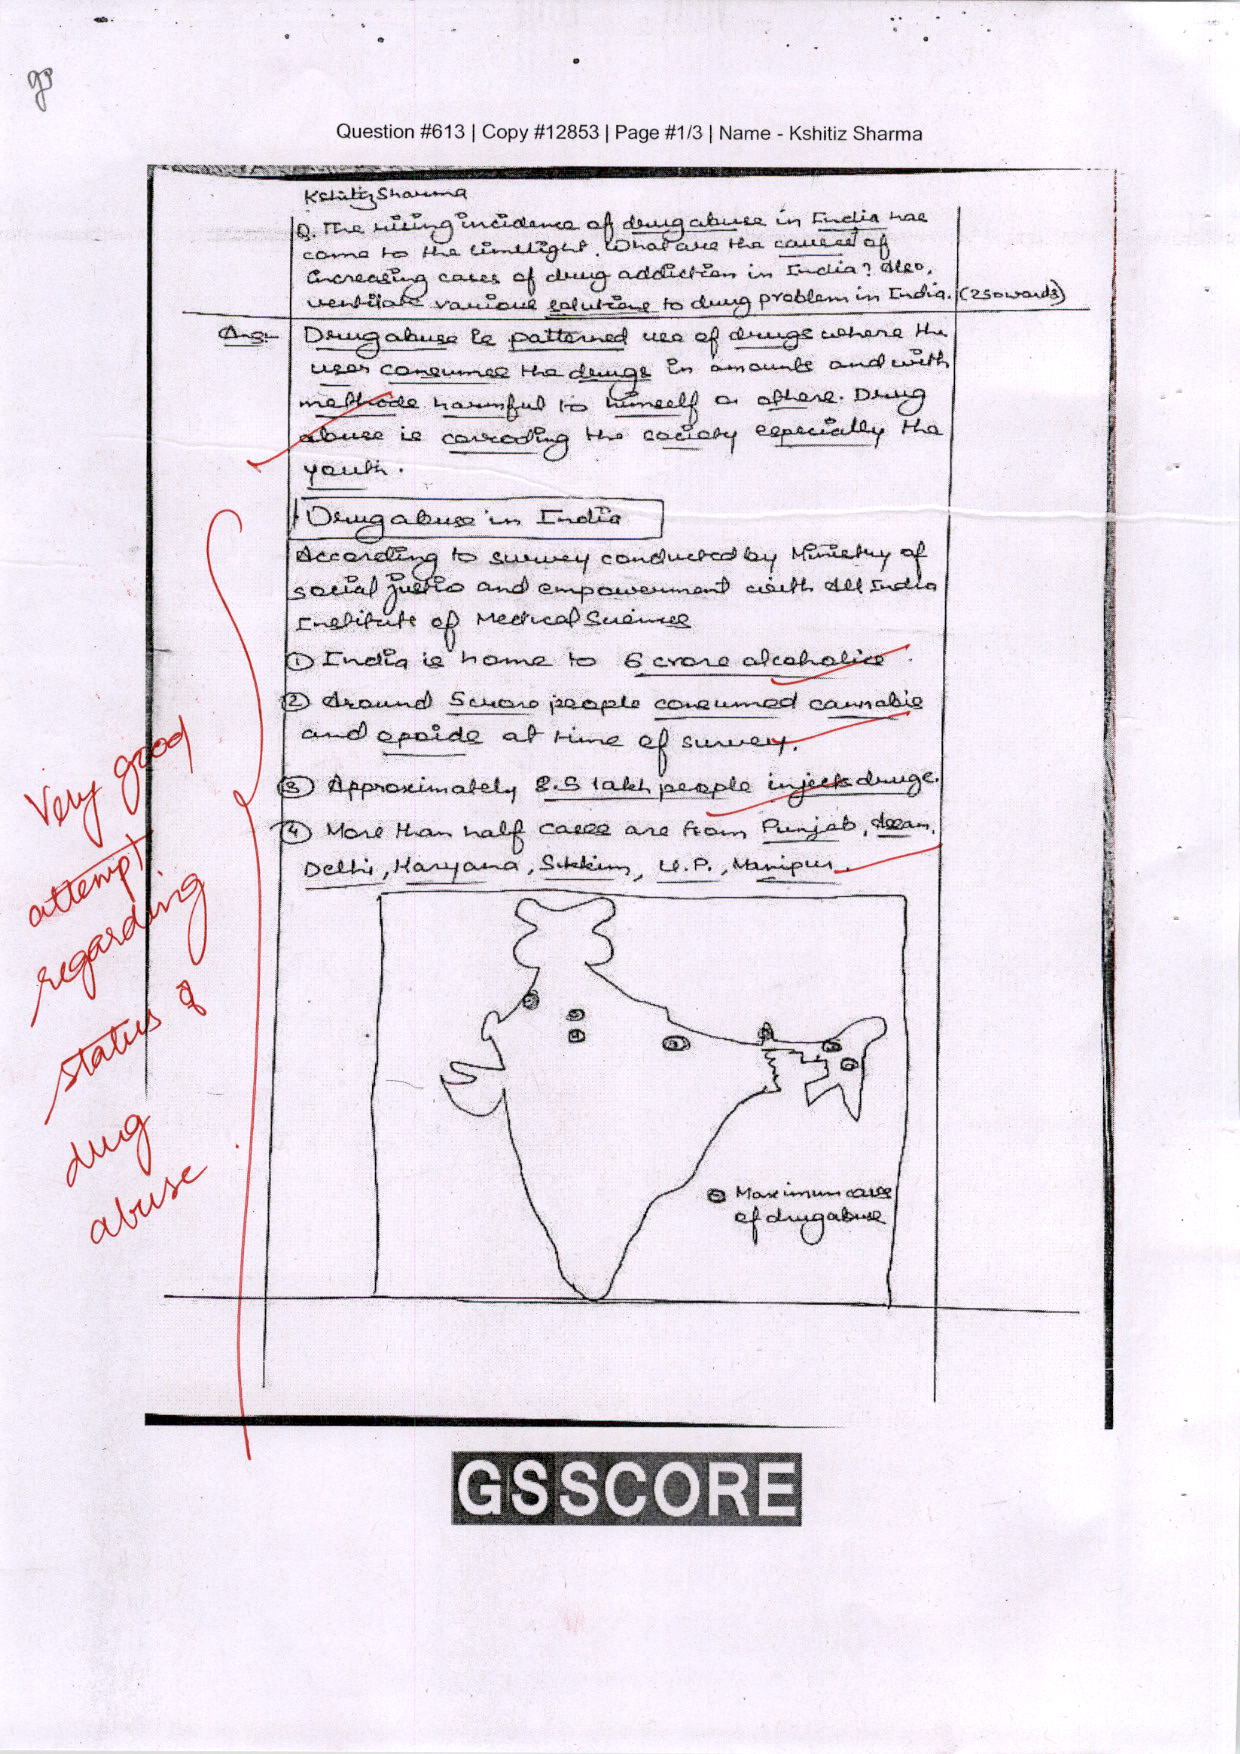 go
Question #613 | Copy #12853 | Page #1/3 | Name - Kshitiz Sharma
Kshitiz Sharma
Q. The rising incidence of drug abuse in India has
come to the limelight. What are the causes of
increasing cases of drug addiction in India? Also,
ventilate various solutions to drug problem in India. (250 words)
Ans:- Drug abuse is patterned use of drugs where the
user consumes the drugs in amounts and with
methods harmful to himself or others. Drug
abuse is corroding the society especially the
youth.
Drug abuse in India
According to survey conducted by Ministry of
social justic and empowerment with All India
Institute of Medical Sciences
① India is home to 6 crore alcoholics.
② Around 5 crore people consumed cannabis
and opoids at time of survey.
③ Approximately 8.5 lakh people injects drugs.
④ More than half cases are from Punjab, Assam,
Delhi, Haryana, Sikkim, U.P., Manipur.
Maximum cases
of drug abuse
Very good
attempt
regarding
status of
drug
abuse
GSSCORE